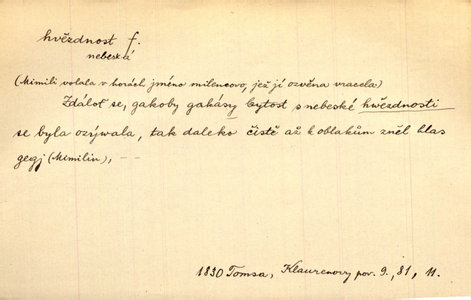 hvězdnost f.
nebeská
(Mimili volala v horách jméno milencovo, jež jí ozvěna vracela)
Zdálot se, gakoby gakásy bytost s nebeské hwězdnosti
se byla ozýwala, tak daleko čistě až k oblakům zněl hlas
gegj (Mimilin), – –
1830 Tomsa, Klaurenovy pov. 9., 81, 11.